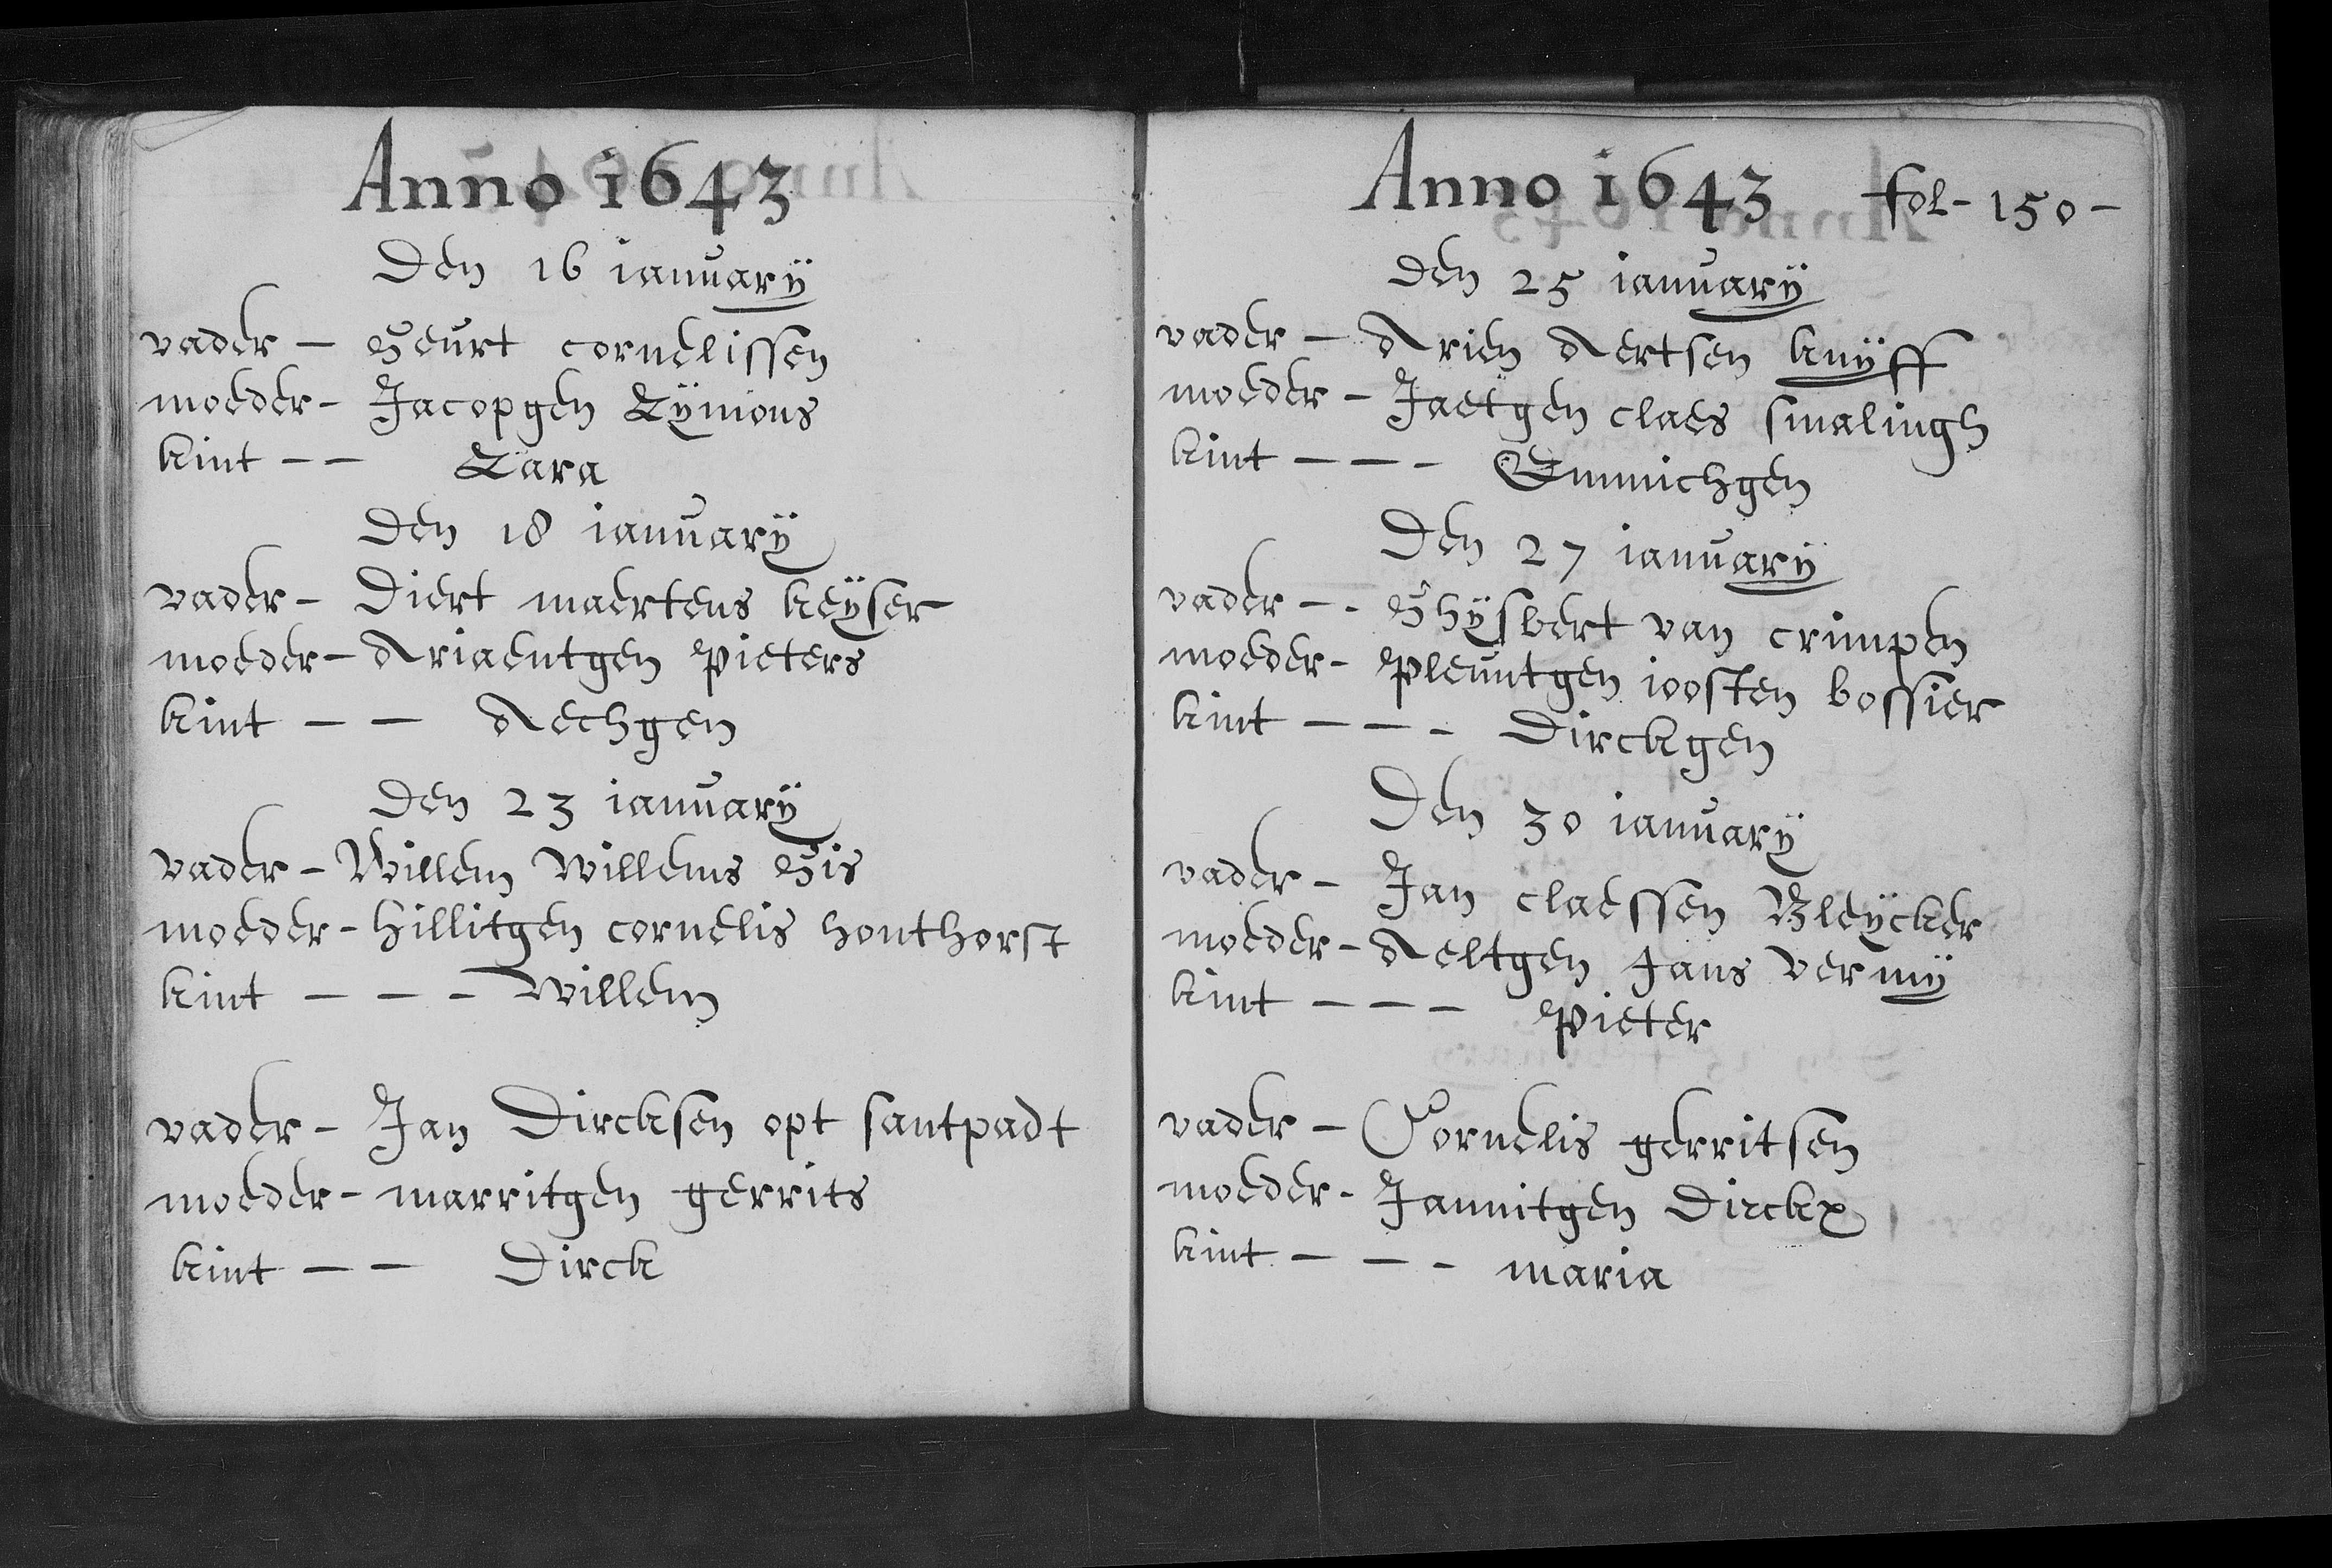 Anno 1643
Den 16 ianuary
vader - Geurt cornelissen
moeder - Jacopgen Tymons
kint - - Tara
Den 18 ianuary
vader - Diert maertens keyser
moeder - Ariaentgen Pieters
kint - - Aechgen
Den 23 ianuary
vader - Willem Willems Gis
moeder - hillitgen cornelis honthorst
kint - - - Willem
vader - Jan Dircksen opt santpadt
moeder - marritgen gerrits
kint - - Dirck
Anno 1643 fol - 150 -
Den 25 ianuary
vader - Arien Aertsen knyff
moeder - Jaetgen claes smalingh
kint - - - Emmichgen
Den 27 ianuary
vader - - Ghysbert van crimpen
moeder - Pleuntgen ioosten bossier
kint - - - Dirckgen
Den 30 ianuary
vader - Jan claessen Bleycker
moeder - Aeltgen Jans vermy
kint - - - Pieter
vader - Cornelis gerritsen
moeder - Jannitgen Dirckx
kint - - - maria